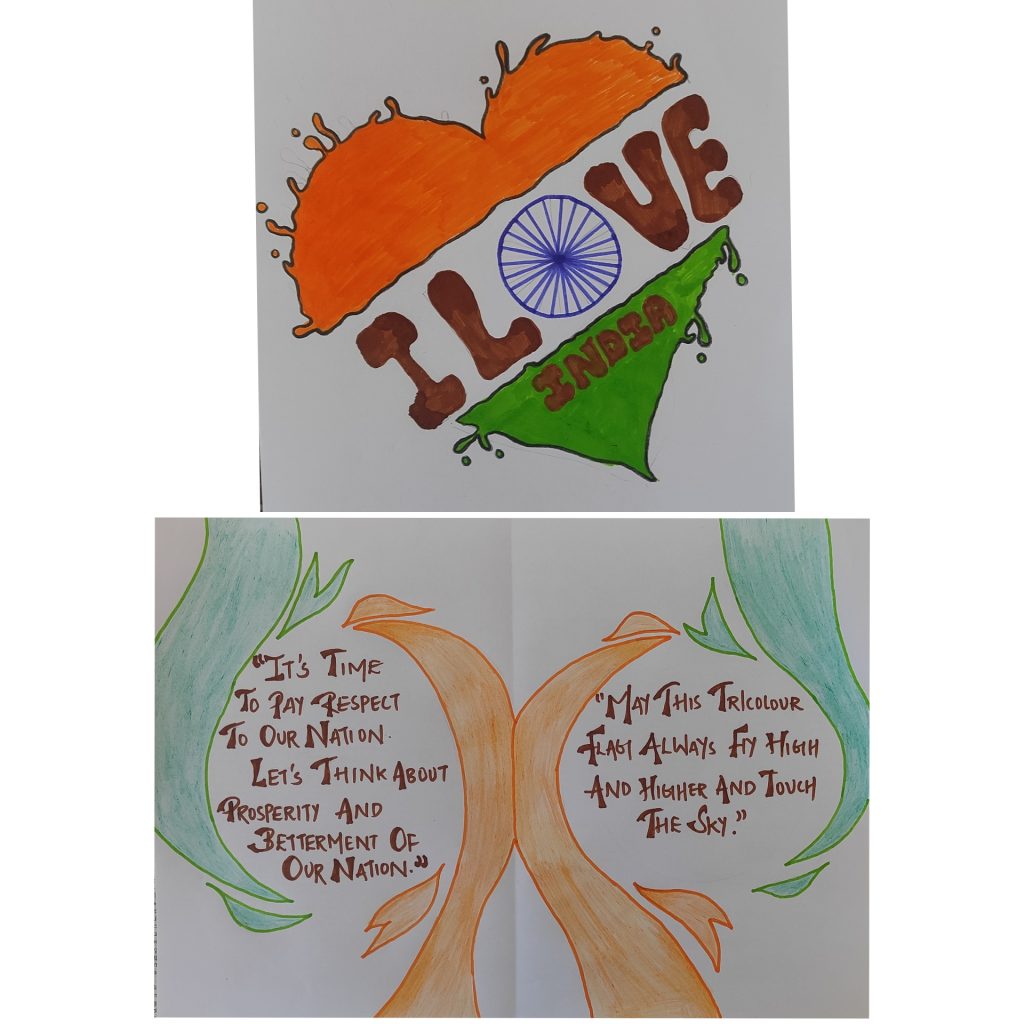 I LOVE
INDIA
"IT'S TIME
TO PAY RESPECT
TO OUR NATION.
LET'S THINK ABOUT
PROSPERITY AND
BETTERMENT OF
OUR NATION."
"MAY THIS TRICOLOUR
FLAG ALWAYS FLY HIGH
AND HIGHER AND TOUCH
THE SKY."